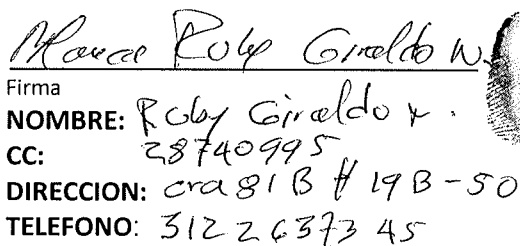 Roby Giraldo N.
Firma
NOMBRE: Roby Giraldo
CC: 28740995
DIRECCION: cra 81 B # 19 B - 50
TELEFONO: 3122637345